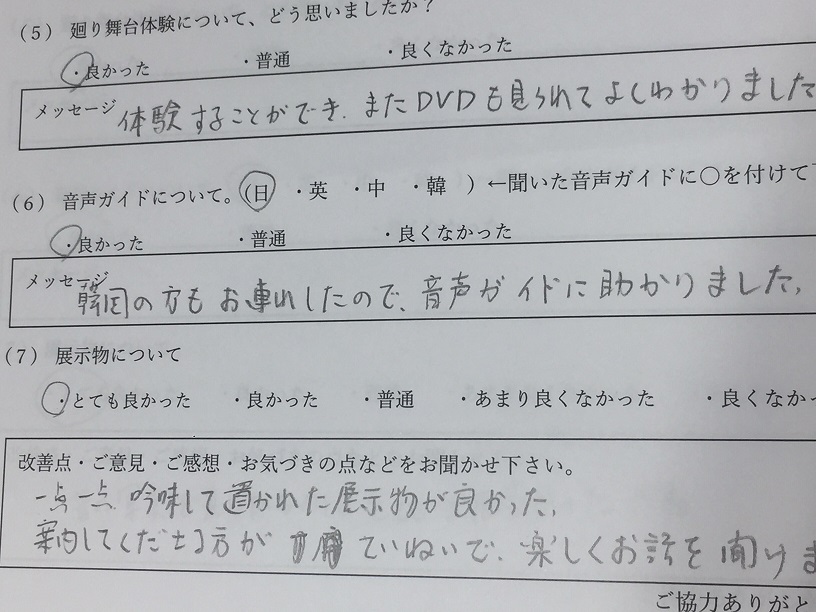 (5) 廻り舞台体験について、どう思いましたか?
・良かった ・普通 ・良くなかった
メッセージ 体験することができ、またDVDも見られてよくわかりました
(6) 音声ガイドについて。(日 ・英 ・中 ・韓 ) ←聞いた音声ガイドに〇を付けて下
・良かった ・普通 ・良くなかった
メッセージ
韓国の方もお連れしたので、音声ガイドに助かりました。
(7) 展示物について
・とても良かった ・良かった ・普通 ・あまり良くなかった ・良くなか
改善点・ご意見・ご感想・お気づきの点などをお聞かせ下さい。
一点一点、吟味して置かれた展示物が良かった。
案内してくださる方が ていねいで、楽しくお話を聞けま
ご協力ありがと